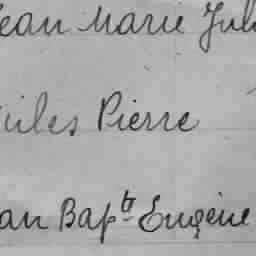 Jean Marie Jul
Jules Pierre
ean Bapte Eugène